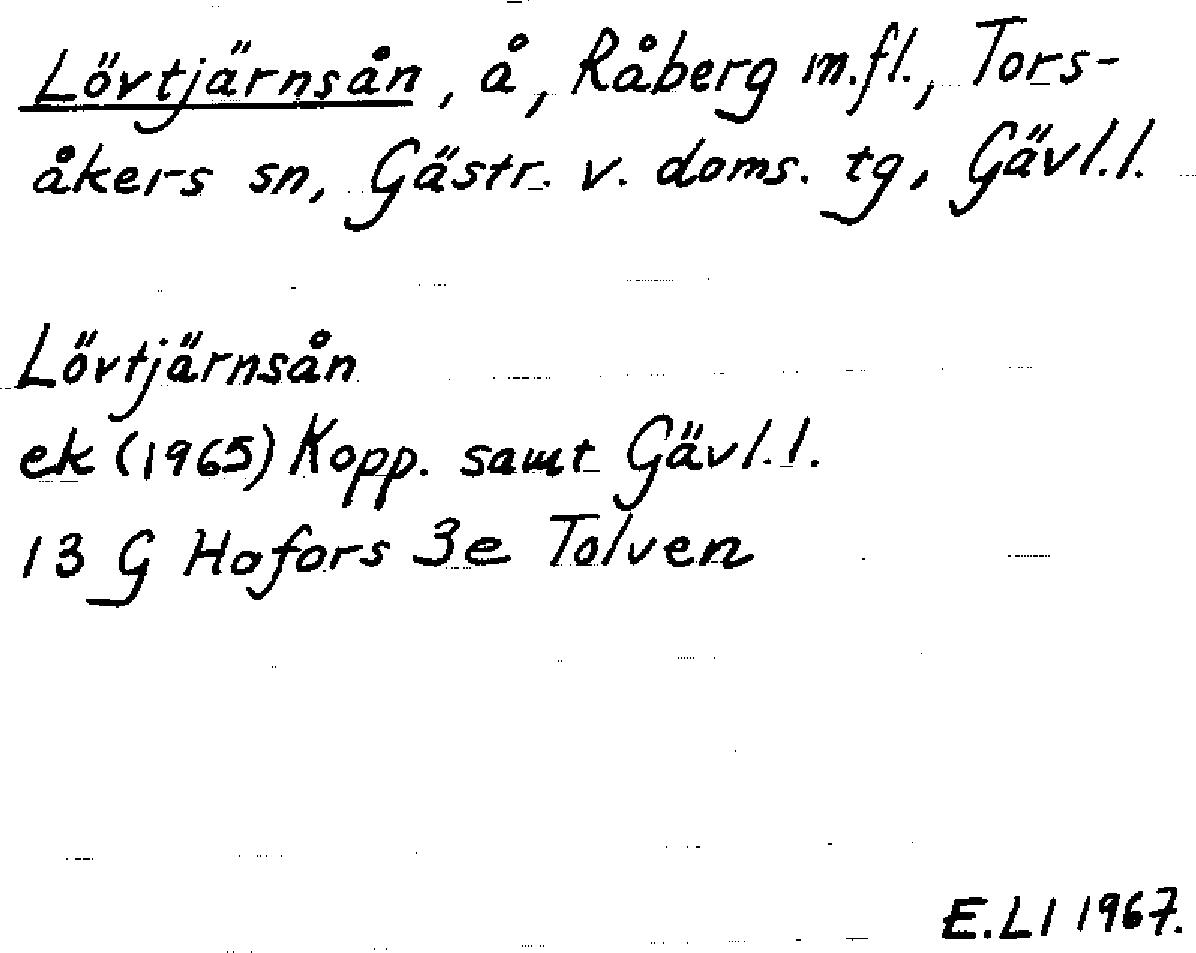 Lövtjärnsån, å, Råberg m.fl., Tors-
åkers sn, Gästr. v. doms. tg, Gävl.l.
Lövtjärnsån
ek (1965) Kopp. samt Gävl.l.
13 G Hofors 3e Tolven
E.Ll 1967.